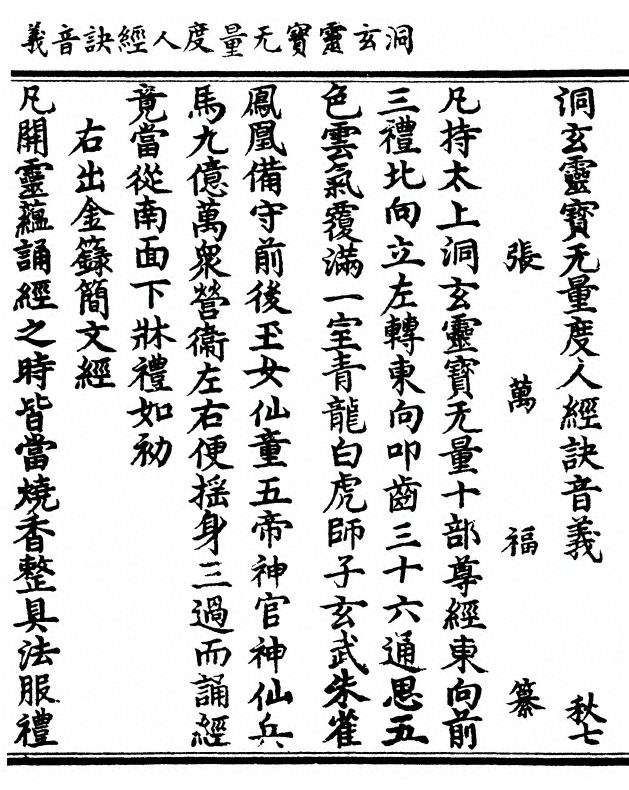 洞玄靈寶无量度人經訣音義
洞玄靈寶无量度人經訣音義 秋七
張萬福纂
凡持太上洞玄靈寶无量十部尊經東向前
三禮北向立左轉東向叩齒三十六通思五
色雲氣覆滿一室青龍白虎師子玄武朱雀
鳳凰備守前後玉女仙童五帝神官神仙兵
馬九億萬衆營衞左右便揺身三過而誦經
竟當從南面下牀禮如初
右出金籙簡文經
凡開靈蘊誦經之時皆當燒香整具法服禮